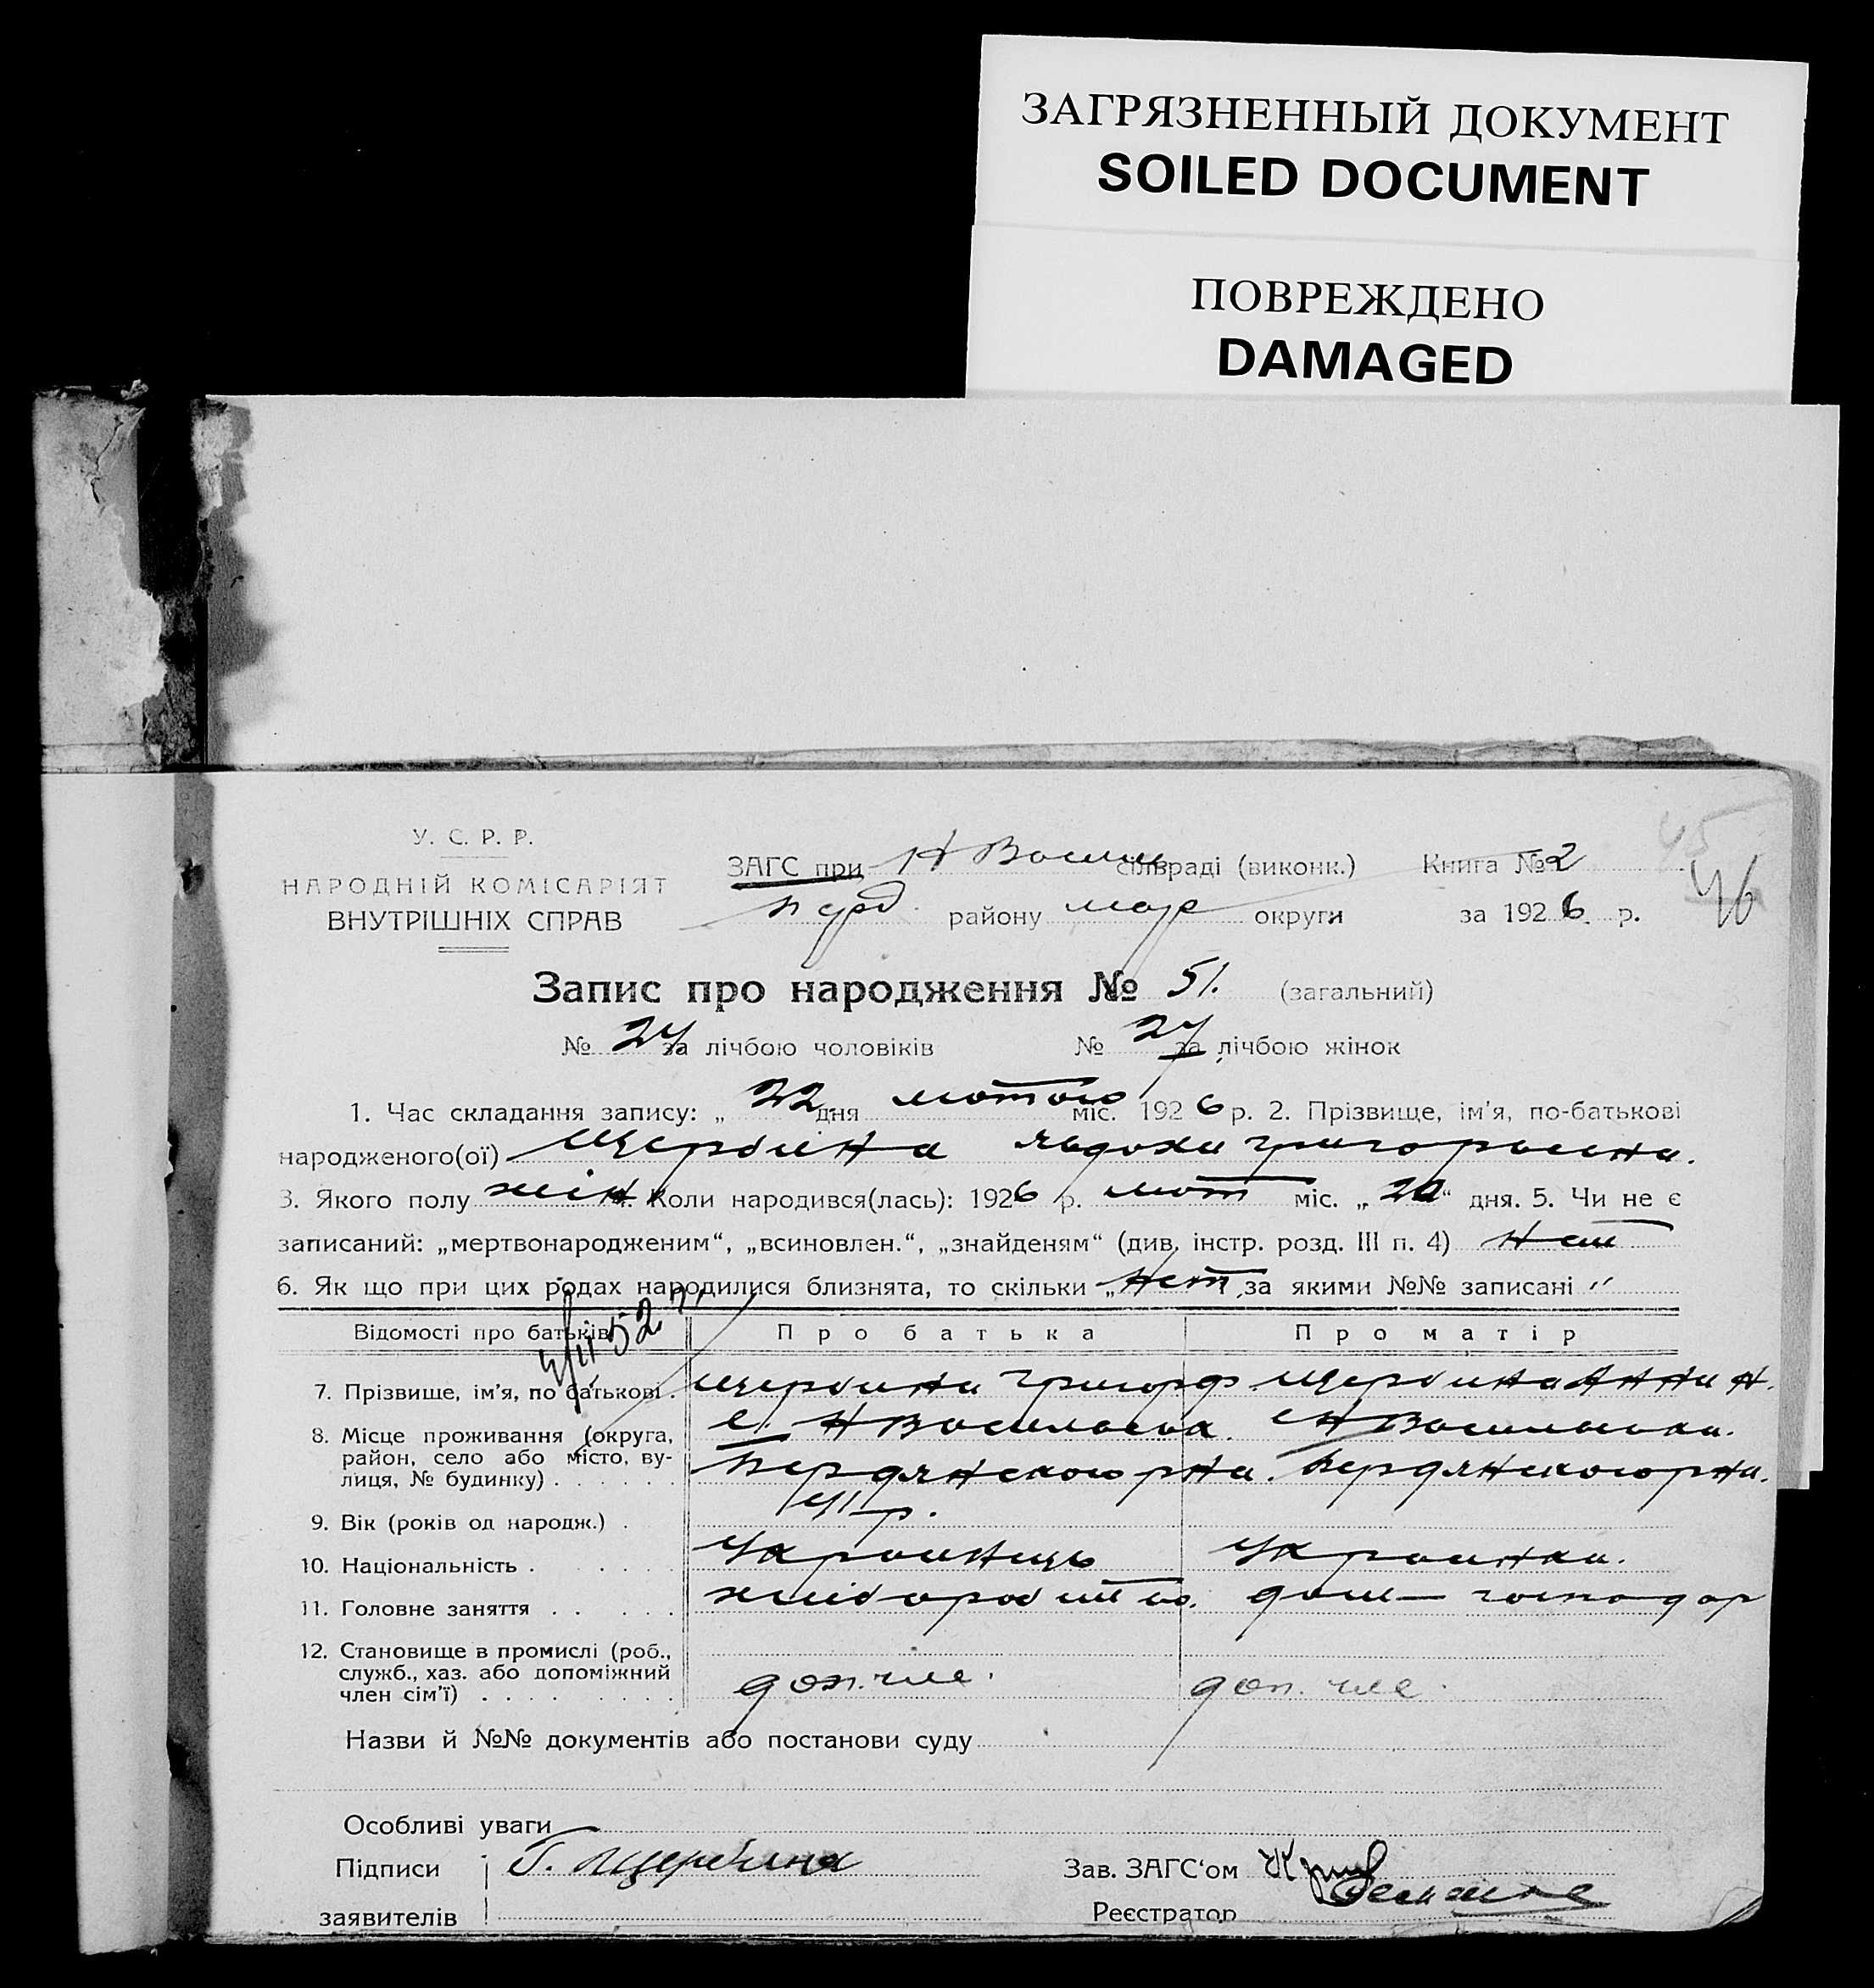 ЗАГРЯЗНЕННЫЙ ДОКУМЕНТ
SOILED DOCUMENT
ПОВРЕЖДЕНО
DAMAGED
У. С. Р. Р.
НАРОДНІЙ КОМІСАРІЯТ
ВНУТРІШНІХ СПРАВ
ЗАГС при Н Васил сільраді (виконк.) Книга № 2
району мар округи за 1926 р.
46
Запис про народження № 51. (загальний)
№ 24 за лічбою чоловіків № 27 за лічбою жінок
1. Час складання запису: „ 22 дня лютого міс. 1926 р. 2. Прізвище, ім'я, по-батькові
народженого(ої) Щербина Явдоха Григорьевна.
3. Якого полу жін 4. Коли народився(лась): 1926 р. лют міс. „ “ дня. 5. Чи не є
записаний: „мертвонародженим“, „всиновлен.“, „знайденям“ (див. інстр. розд. III п. 4) нет
6. Як що при цих родах народилися близнята, то скільки „ нет за якими №№ записані "
Відомості про батьків Про батька Про матір
7. Прізвище, ім'я, по батькові . Щербина Григор Щербина Анна Н.
8. Місце проживання (округа, с. НВасилевка. с НВасильевка.
район, село або місто, ву-
лиця, № будинку) . . . . . Бердянского рна. Бердянского рна.
9. Вік (років од народж.) . 41 р.
10. Національність . . . . . Украинець Украинка.
11. Головне заняття . . . . . хліборобство. дом — господар
12. Становище в промислі (роб.,
служб., хаз. або допоміжний
член сім'ї) . . . . . . . . доп. чле. доп. чле.
Назви й №№ документів або постанови суду
Особливі уваги
Підписи Г. Щербина Зав. ЗАГС'ом
заявителів Реєстратор